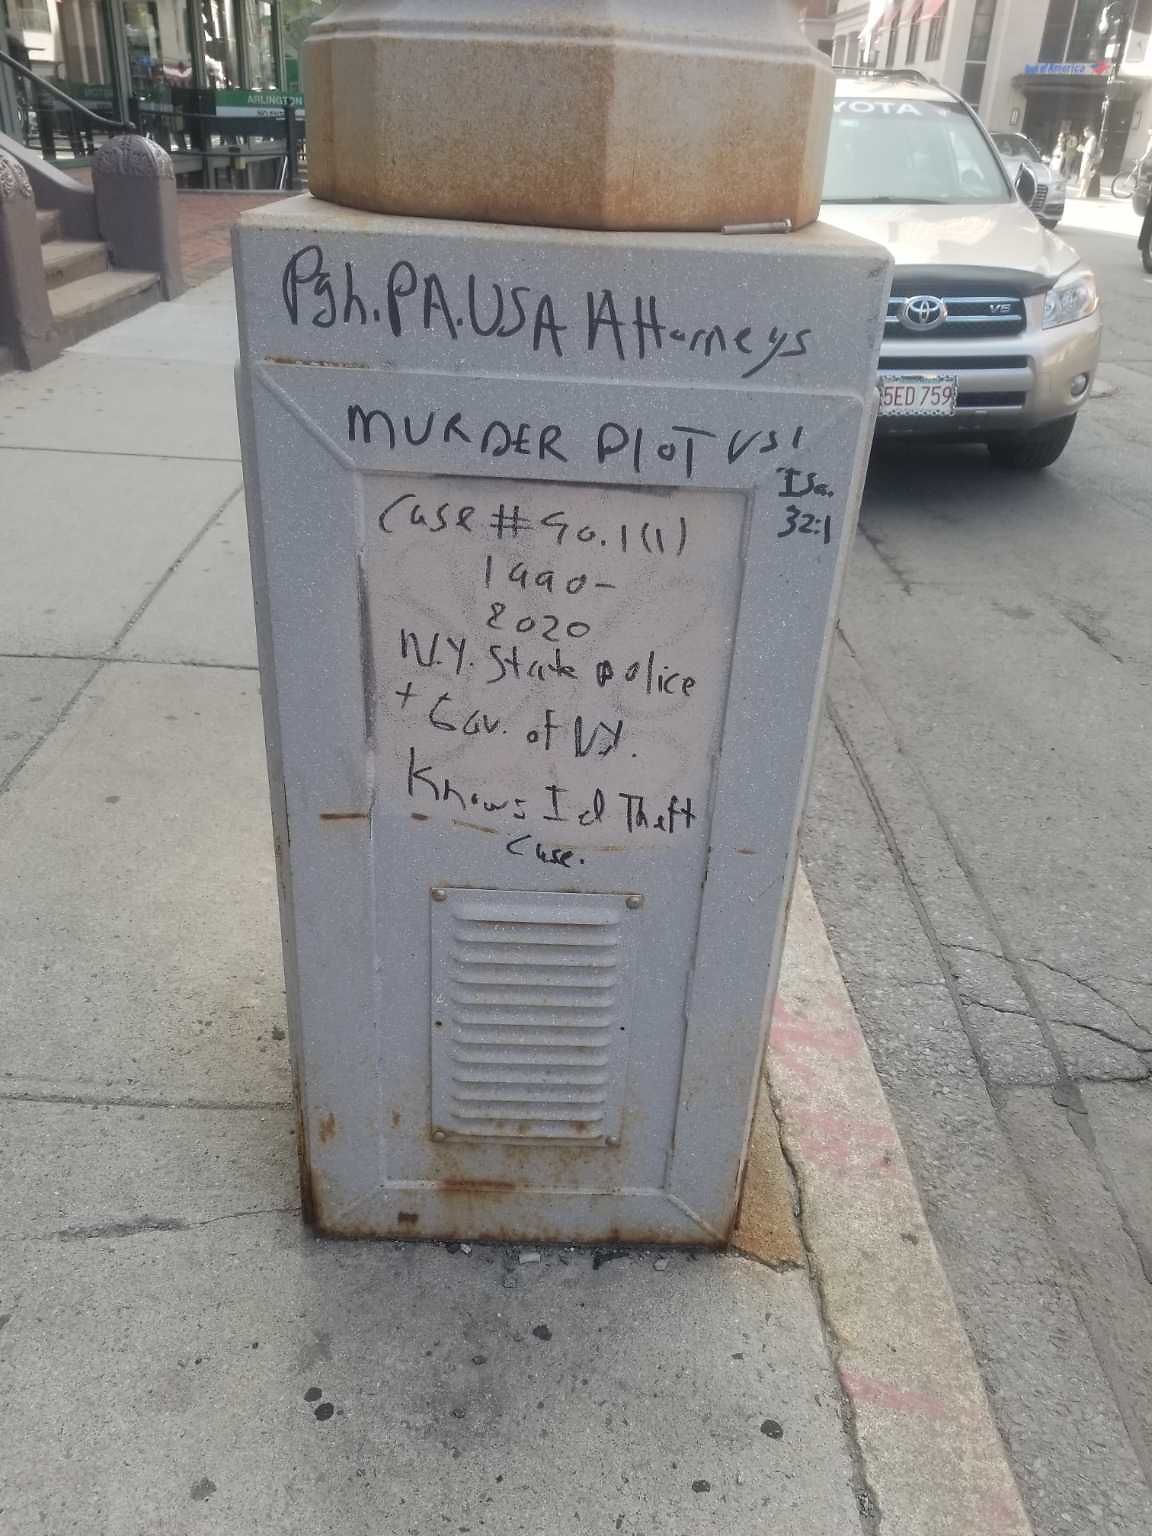 ARLINGTON
YOTA
Bank of America
V6
5ED 759
Pgh. PA. USA Attorneys
MURDER PLOT VS!
Isa.
32:1
Case # 90.1(1)
1990-
2020
N.Y. State Police
+ Gov. of NY.
Knows Id Theft
Case.